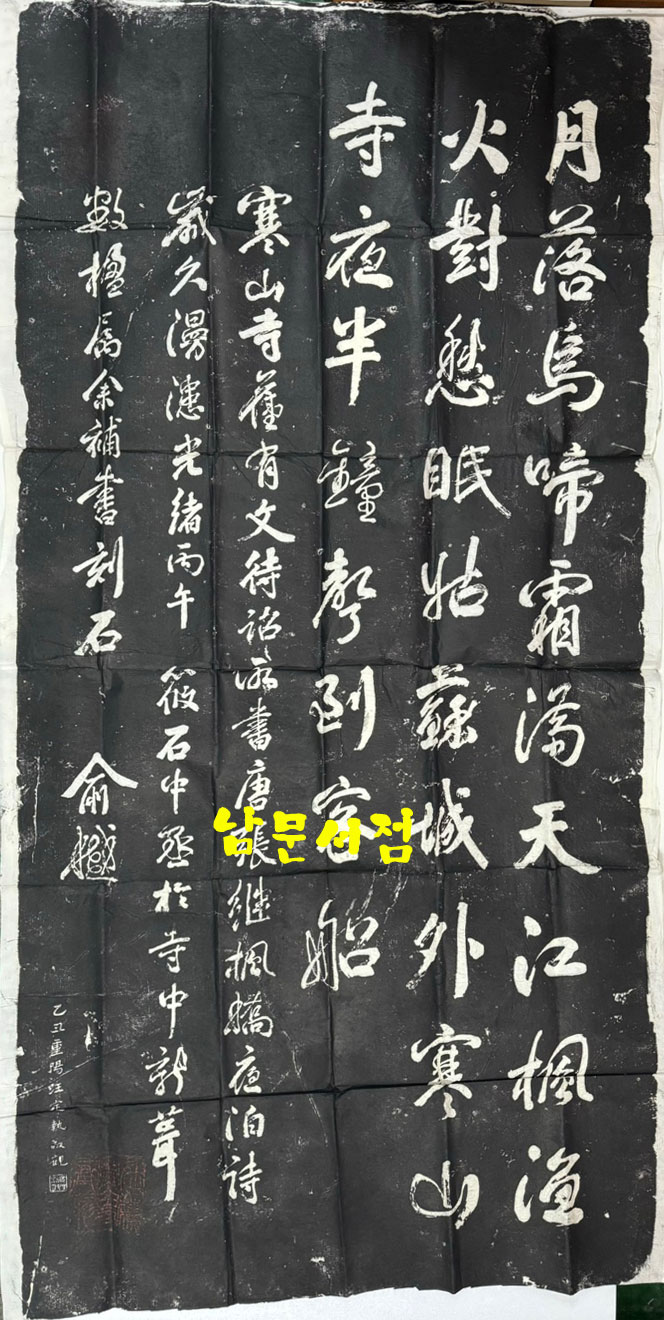 月落烏啼霜滿天江楓漁
火對愁眠姑蘇城外寒山
寺夜半鐘聲到客船
寒山寺舊有文待詔所書唐張繼楓橋夜泊詩
歲久漫漶光緒丙午 筱石中丞於寺中新葺
數楹屬余補書刻石 俞樾
乙丑重陽汪 敬觀
남문서점